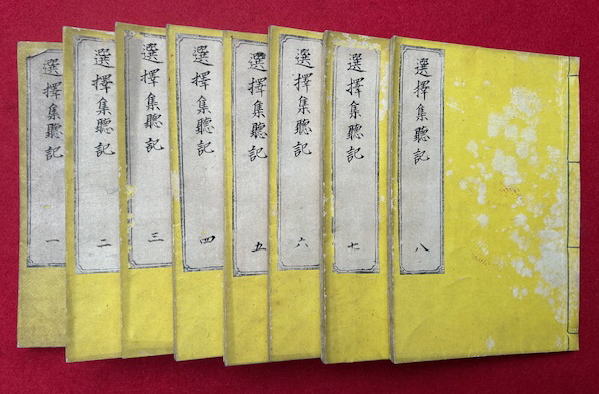 選擇集聽記 一
選擇集聽記 二
選擇集聽記 三
選擇集聽記 四
選擇集聽記 五
選擇集聽記 六
選擇集聽記 七
選擇集聽記 八